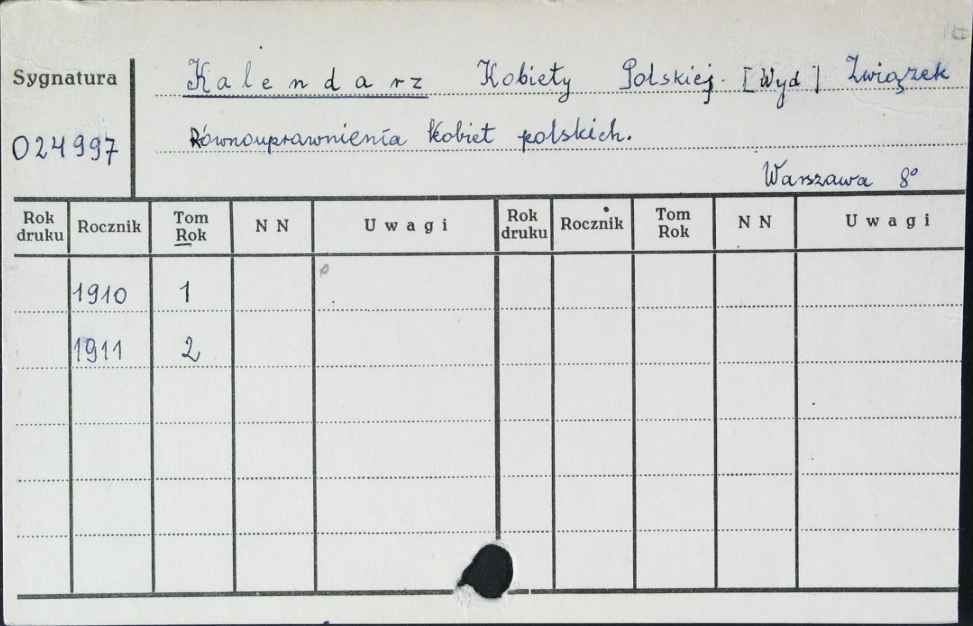 Sygnatura
Kalendarz Kobiety Polskiej. [Wyd] Związek
024997
Równouprawnienia kobiet polskich.
Warszawa 8°
Rok druku Rocznik Tom Rok N N Uwagi Rok druku Rocznik Tom Rok N N Uwagi
1910 1
1911 2